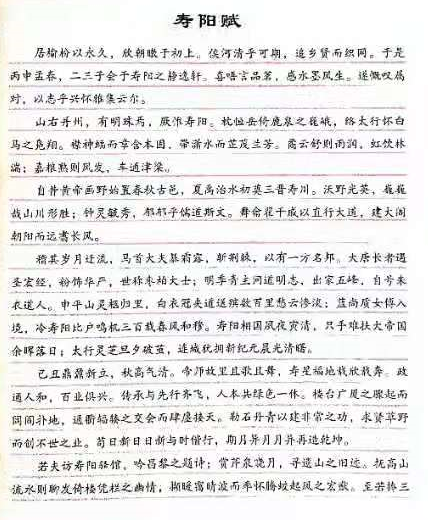 寿阳赋
居榆枌以永久，欣朝暾于初上。俟河清乎可期，追乡贤而织同。于是
丙申孟春，二三子会于寿阳之静逸轩。喜唔言品茗，感水墨风生。遂慨叹属
对，以志乎兴怀雅集云尔。
山右并州，有明珠焉，厥惟寿阳。枕恒岳倚鹿泉之巍峨，络太行怀白
马之凫翔。襟神福而章含本固，带潇水而芷茂兰芳。霭云舒则雨润，虹饮林
端；嘉根熟则风发，车通津梁。
自昔黄帝画野始置春秋古邑，夏禹治水初奠三晋寿川。沃野光英，巍巍
哉山川形胜；钟灵毓秀，郁郁乎儒道斯文。舞俞花千成以直行大道，建大阁
朝阳而远翥长风。
稽其岁月迁流，马首大夫暴霜露，斩荆棘，以有一方名邦。大居长者遇
圣宏经，粉饰华严，世称枣柏大士；明季青主问道明志，出家五峰，自号朱
衣道人。申平山灵柩归里，白衣冠夹道送殡数百里愁云惨淡；蓝尚质女得入
境，冷寿阳比户鸣机三百载春风和穆。寿阳相国夙夜寅清，只手难扶大帝国
余晖落日；太行灵芝旦夕破茧，连城犹拥新纪元晨光清曙。
己丑鼎鼐新立，秋高气清。帝师故里且歌且舞，寿星福地载欣载奔。政
通人和，百业俱兴。传承与先行齐飞，人本共绿色一体。楼台广厦之骤起而
闾阎扑地，通衢辐辏之交会而肆廛接天。勒石丹青以建非常之功，求贤草野
而创不世之业。苟日新日日新与时偕行，期月异月月异再造乾坤。
若夫访寿阳驿馆，吟昌黎之题诗；赏芹泉皓月，寻遗山之旧迹。抚高山
流水则聊发倚楼凭栏之幽情，撷暖霭晴波而率怀腾蛟起凤之宏猷。至若持三